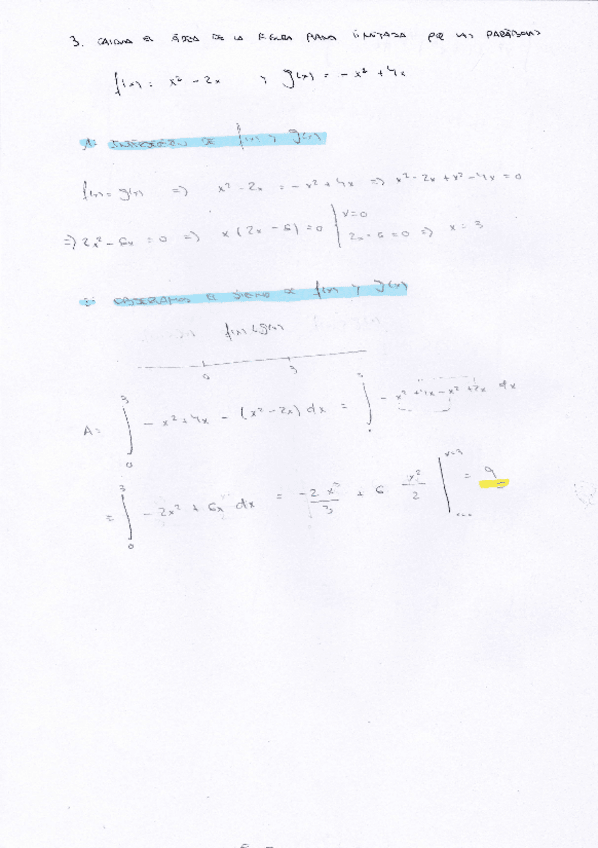 3. CALCULA EL ÁREA DE LA FIGURA PLANA LIMITADA POR LAS PARÁBOLAS
f(x) = x² - 2x y g(x) = - x² + 4x
INTERSECCIÓN DE f(x) y g(x)
f(x) = g(x) => x² - 2x = - x² + 4x => x² - 2x + x² - 4x = 0
=> 2x² - 6x = 0 => x(2x - 6) = 0 | x = 0
2x - 6 = 0 => x = 3
EL SIGNO DE f(x) y g(x)
f(x) < g(x)
0 3
A = ∫₀³ - x² + 4x - (x² - 2x) dx = ∫₀³ - x² + 4x - x² + 2x dx
= ∫₀³ - 2x² + 6x dx = -2 x³/3 + 6 x²/2 |ˣ⁼³ = 9